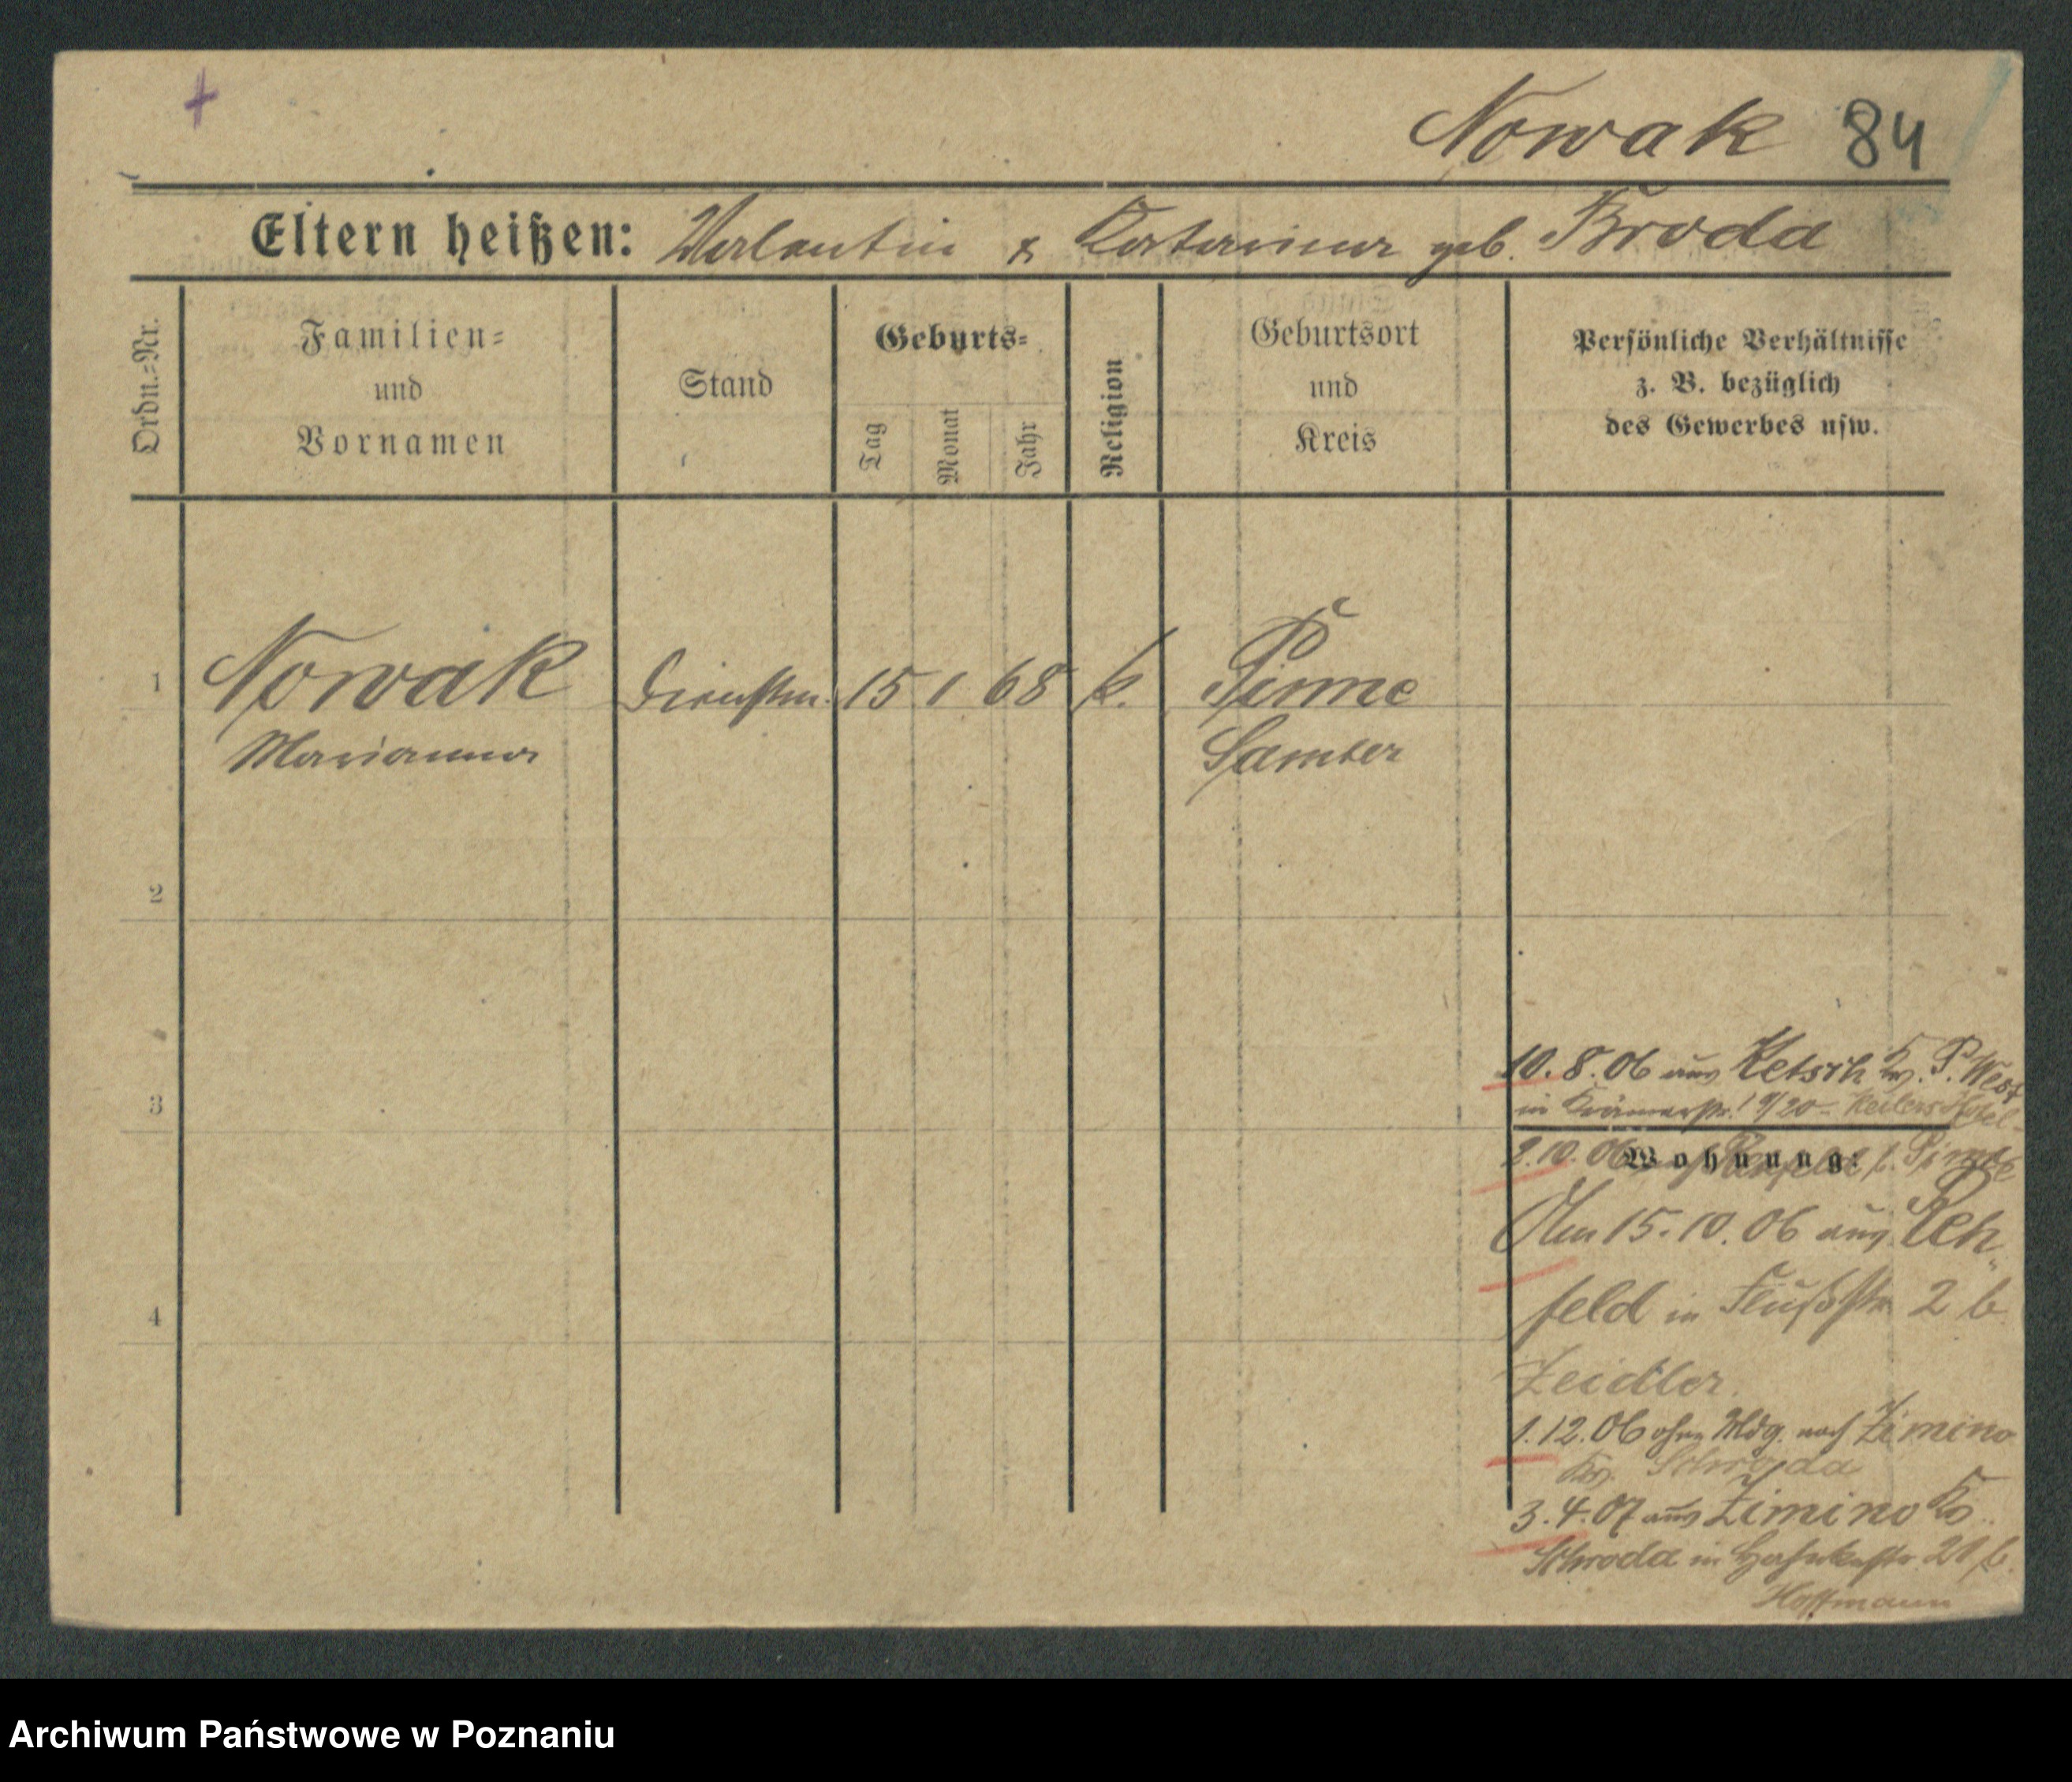 Nowak 84
Eltern heißen: Valentin & Katarina geb. Broda
Ordn.-Nr.
Familien-
und
Vornamen
Stand
Geburts-
Tag
Monat
Jahr
Religion
Geburtsort
und
Kreis
Persönliche Verhältnisse
z. B. bezüglich
des Gewerbes usw.
1 Nowak Dienstm. 15 1 68 k. Pinne
Marianna Samter
2
3
4
10.8.06 aus Ketsch Kr. P. West
in Krämerstr. 19/20 Keilers Hotel
2.10.06
Wohnung:
Am 15.10.06 aus Reh-
feld in Flußstr 2 b
Zeidler.
1.12.06 ohne Mldg. nach Zimino
Kr. Schroda
3.4.07 aus Zimino Kr.
Schroda in 21 b.
Hoffmann
Archiwum Państwowe w Poznaniu